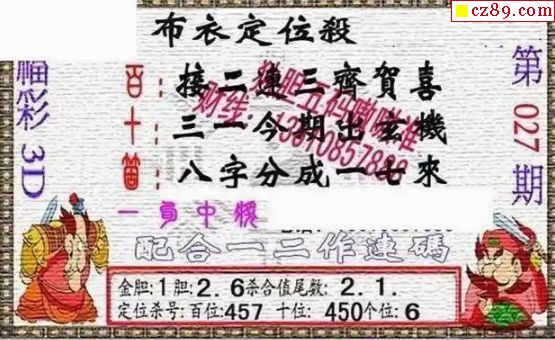 cz89.com
布衣定位殺
福彩3D
第027期
百：接二連三齊賀喜
十：三一今期出玄機
箇：八字分成一七來
一員中獎
配合一二作連碼
金胆:1胆:2.6杀合值尾数:2.1.
定位杀号:百位:457 十位:450个位:6